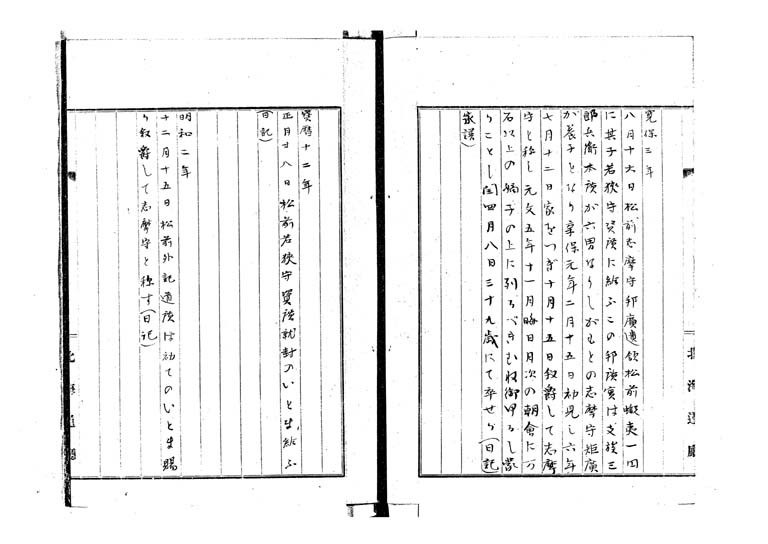 寛保三年
八月十六日松前志摩守邦廣遺領松前蝦夷一円
に其子若狭守資廣に給ふこの邦廣實は支族三
郎兵衛本廣が六男なりしがもとの志摩守矩廣
が養子となり享保元年二月十五日初見し六年
七月十二日家をつぎ十月十五日叙爵して志摩
守と称し元文五年十一月晦日月次の朝會に万
石以上の嫡子の上に列るべきむね御ゆるし蒙
りことし閏四月八日三十九歳にて卒せり(日記)
寶暦十二年
正月廿八日松前若狭守資廣就封のいとま給ふ
(日記)
明和二年
十二月十五日松前外記道廣は初てのいとま賜
り叙爵して志摩守と称す(日記)
北海道廳
北海道廳